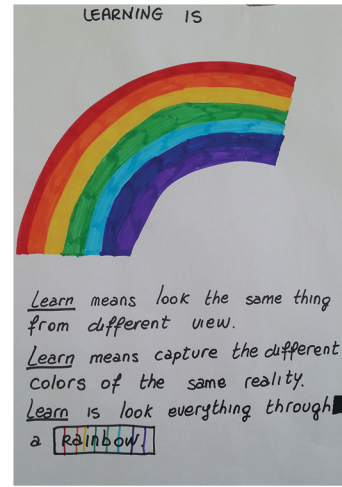 LEARNING IS
Learn means look the same thing
from different view.
Learn means capture the different
colors of the same reality.
Learn is look everything through
a rainbow.